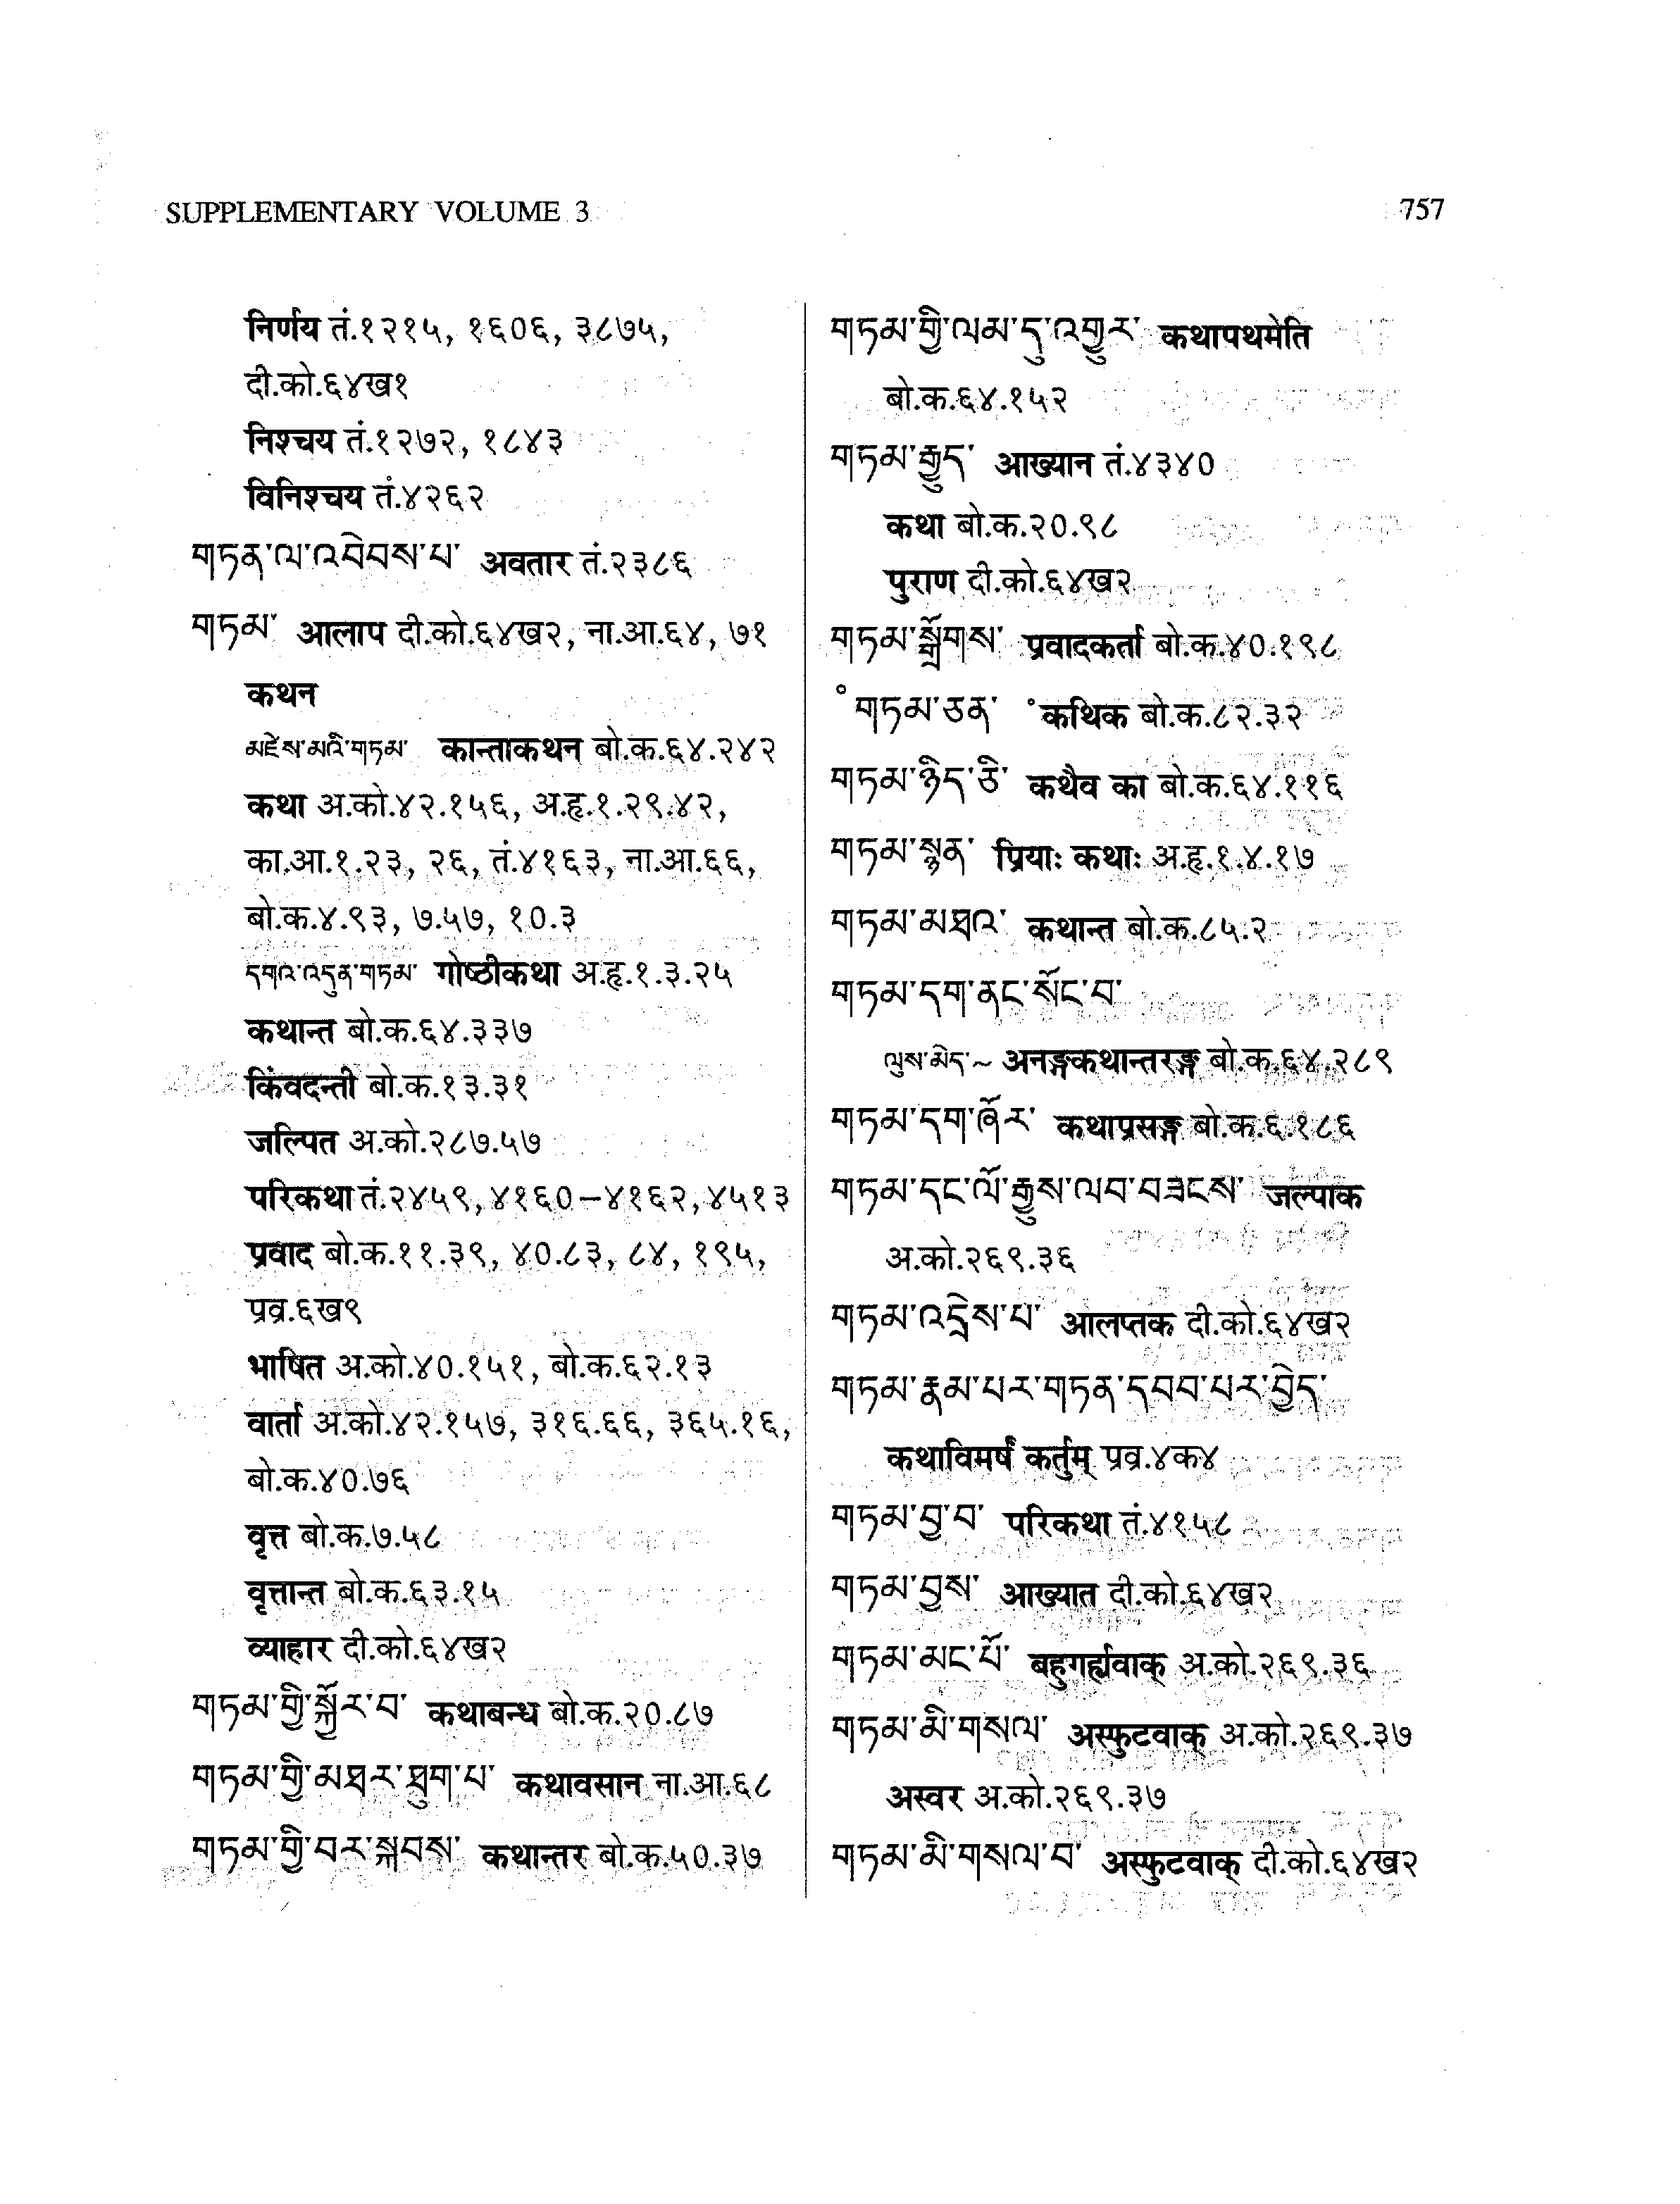 SUPPLEMENTARY VOLUME 3
757
निर्णय तं.१२१५, १६०६, ३८७५,
दी.को.६४ख१
निश्चय तं.१२७२, १८४३
विनिश्चय तं.४२६२
གཏན་ལ་འབེབས་པ་ अवतार तं.२३८६
གཏམ་ आलाप दी.को.६४ख२, ना.आ.६४, ७१
कथन
མཛེས་མའི་གཏམ་ कान्ताकथन बो.क.६४.२४२
कथा अ.को.४२.१५६, अ.हृ.१.२९.४२,
का.आ.१.२३, २६, तं.४१६३, ना.आ.६६,
बो.क.४.९३, ७.५७, १०.३
དགའ་འདུན་གཏམ་ गोष्ठीकथा अ.हृ.१.३.२५
कथान्त बो.क.६४.३३७
किंवदन्ती बो.क.१३.३१
जल्पित अ.को.२८७.५७
परिकथा तं.२४५९, ४१६०–४१६२, ४५१३
प्रवाद बो.क.११.३९, ४०.८३, ८४, १९५,
प्रव्र.६ख९
भाषित अ.को.४०.१५१, बो.क.६२.१३
वार्ता अ.को.४२.१५७, ३१६.६६, ३६५.१६,
बो.क.४०.७६
वृत्त बो.क.७.५८
वृत्तान्त बो.क.६३.१५
व्याहार दी.को.६४ख२
གཏམ་གྱི་སྐྱོར་བ་ कथाबन्ध बो.क.२०.८७
གཏམ་གྱི་མཐར་ཐུག་པ་ कथावसान ना.आ.६८
གཏམ་གྱི་བར་སྐབས་ कथान्तर बो.क.५०.३७
གཏམ་གྱི་ལམ་དུ་འགྱུར་ कथापथमेति
बो.क.६४.१५२
གཏམ་རྒྱུད་ आख्यान तं.४३४०
कथा बो.क.२०.९८
पुराण दी.को.६४ख२
གཏམ་སྒྲོགས་ प्रवादकर्ता बो.क.४०.१९८
°གཏམ་ཅན་ °कथिक बो.क.८२.३२
གཏམ་ཉིད་ཅི་ कथैव का बो.क.६४.११६
གཏམ་སྙན་ प्रियाः कथाः अ.हृ.१.४.१७
གཏམ་མཐའ་ कथान्त बो.क.८५.२
གཏམ་དག་ནང་སོང་བ་
ལུས་མེད་~ अनङ्गकथान्तरङ्ग बो.क.६४.२८९
གཏམ་དག་ཞོར་ कथाप्रसङ्ग बो.क.६.१८६
གཏམ་དང་ལོ་རྒྱུས་ལབ་བཟངས་ जल्पाक
अ.को.२६९.३६
གཏམ་འདྲེས་པ་ आलप्तक दी.को.६४ख२
གཏམ་རྣམ་པར་གཏན་དབབ་པར་བྱེད་
कथाविमर्षं कर्तुम् प्रव्र.४क४
གཏམ་བྱ་བ་ परिकथा तं.४१५८
གཏམ་བྱས་ आख्यात दी.को.६४ख२
གཏམ་མང་པོ་ बहुगर्ह्यवाक् अ.को.२६९.३६
གཏམ་མི་གསལ་ अस्फुटवाक् अ.को.२६९.३७
अस्वर अ.को.२६९.३७
གཏམ་མི་གསལ་བ་ अस्फुटवाक् दी.को.६४ख२